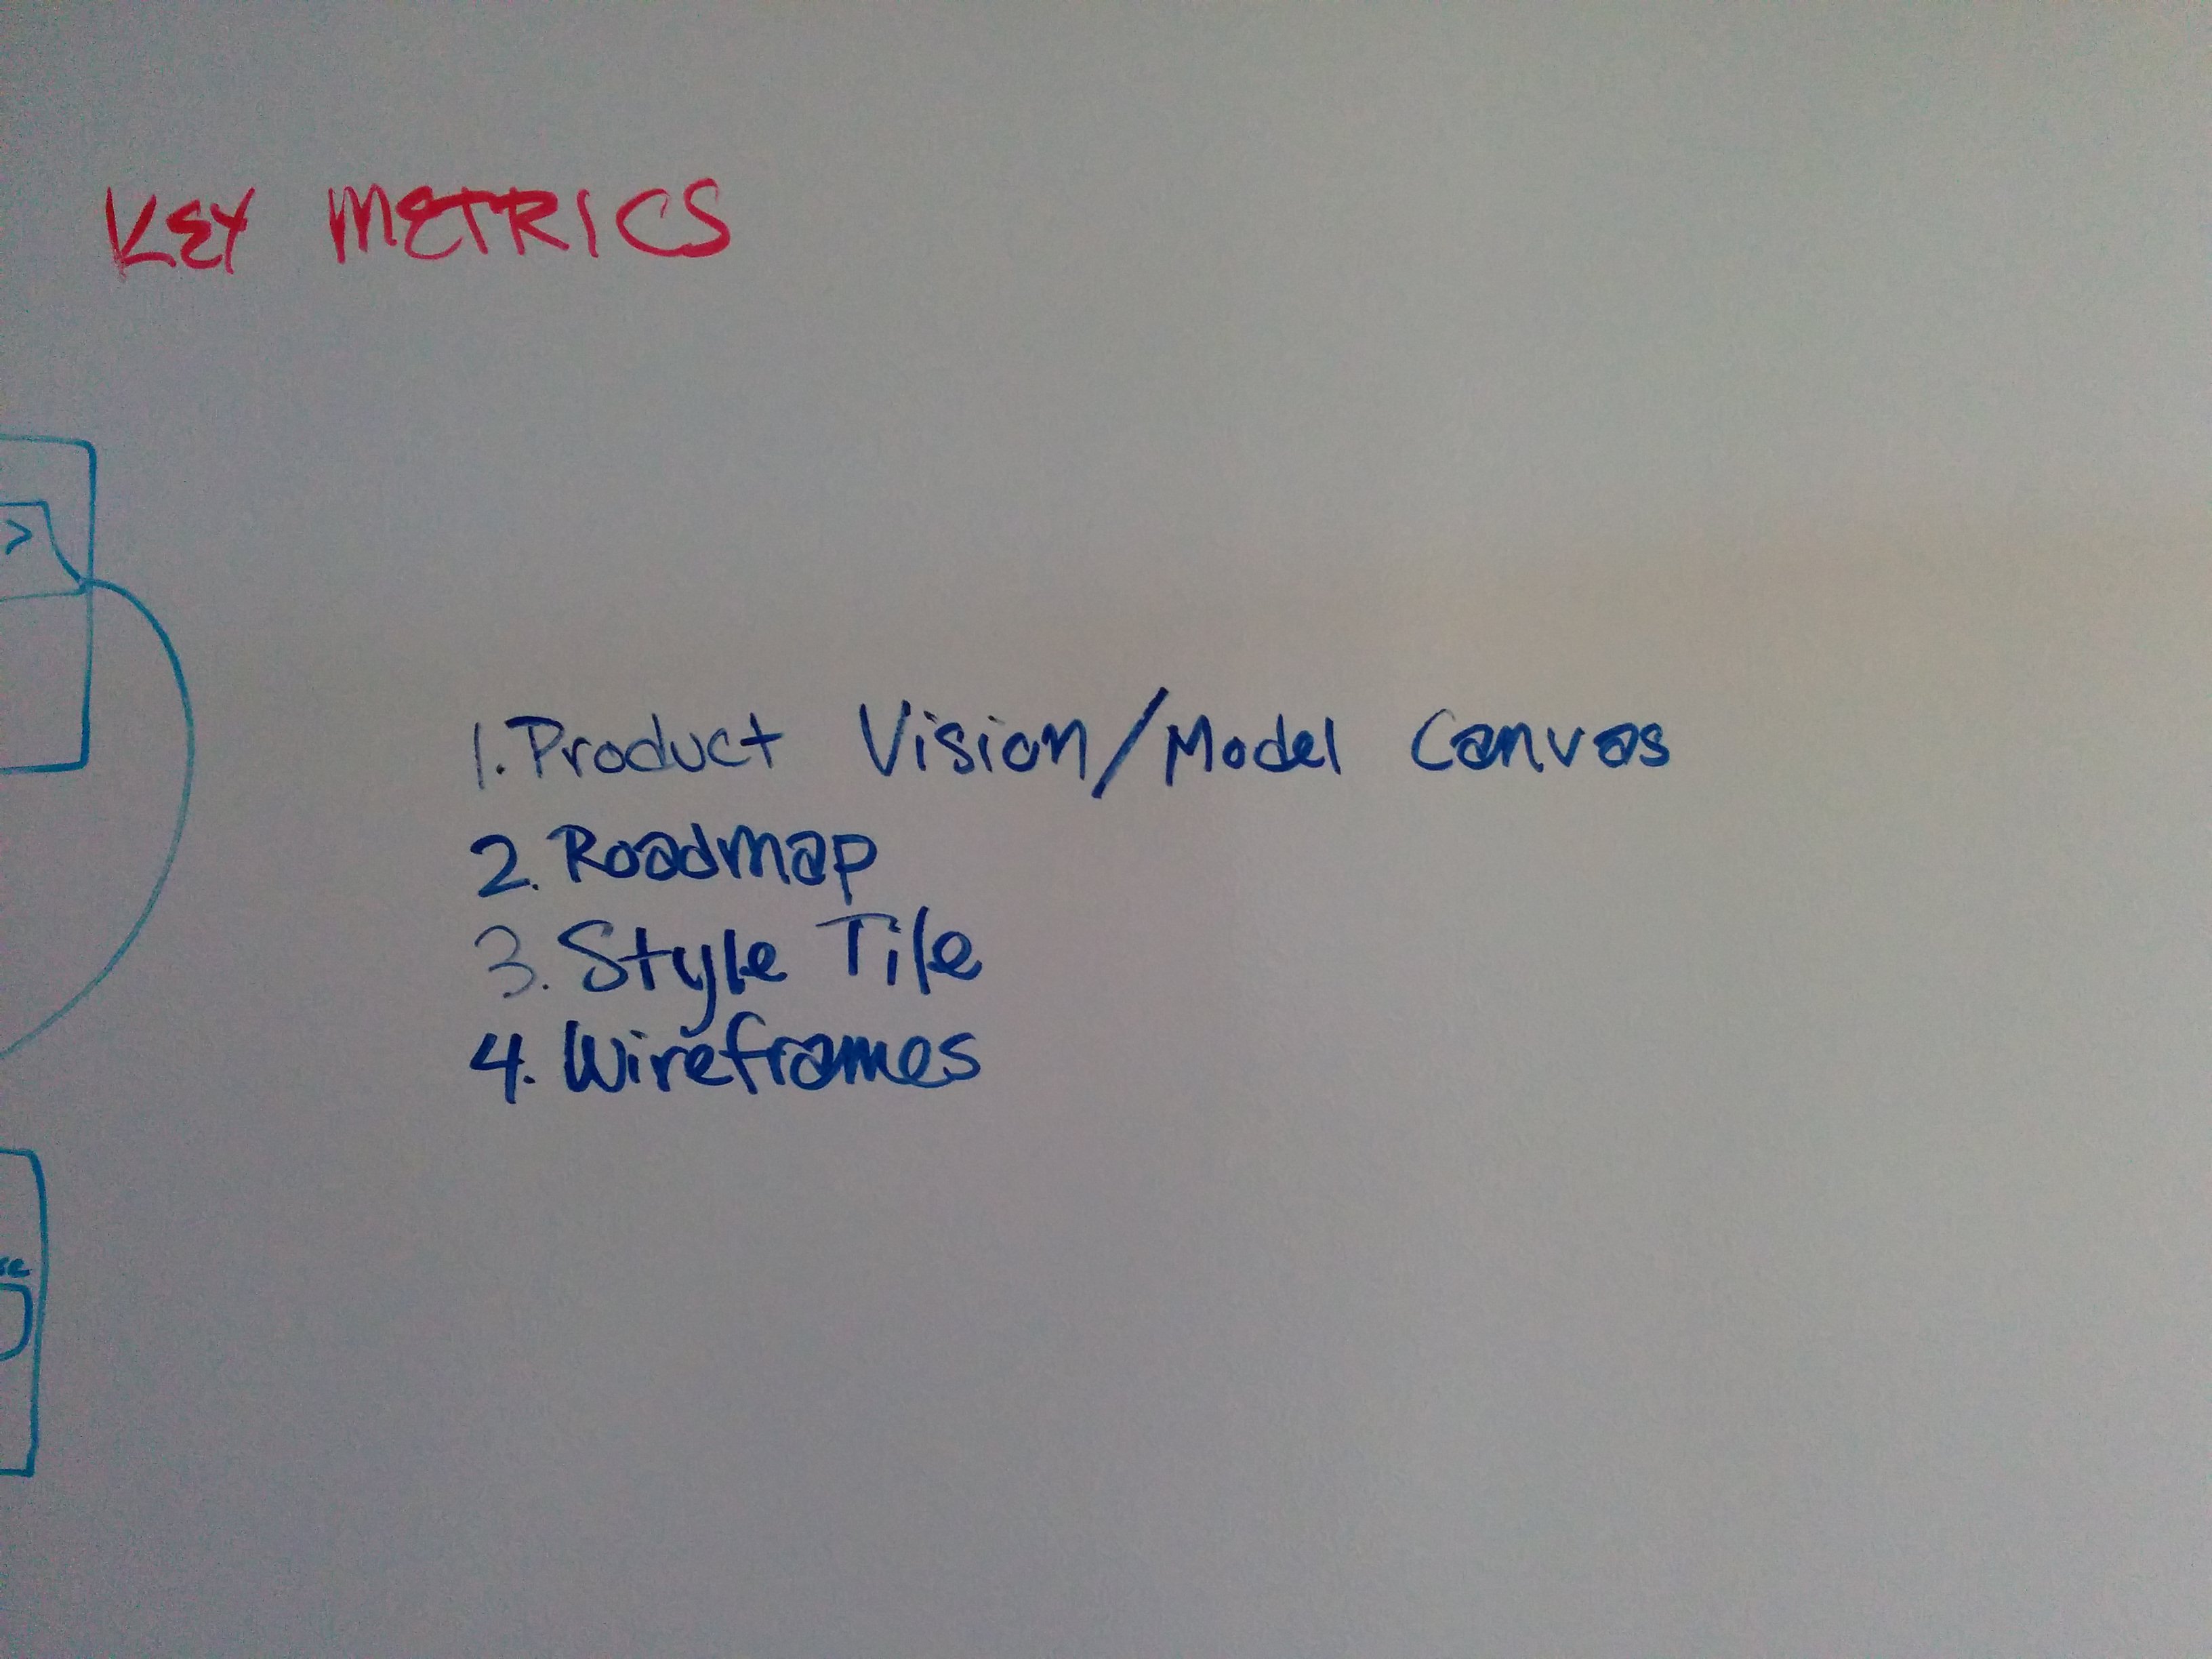 KEY METRICS
>
1. Product Vision/Model Canvas
2. Roadmap
3. Style Tile
4. Wireframes